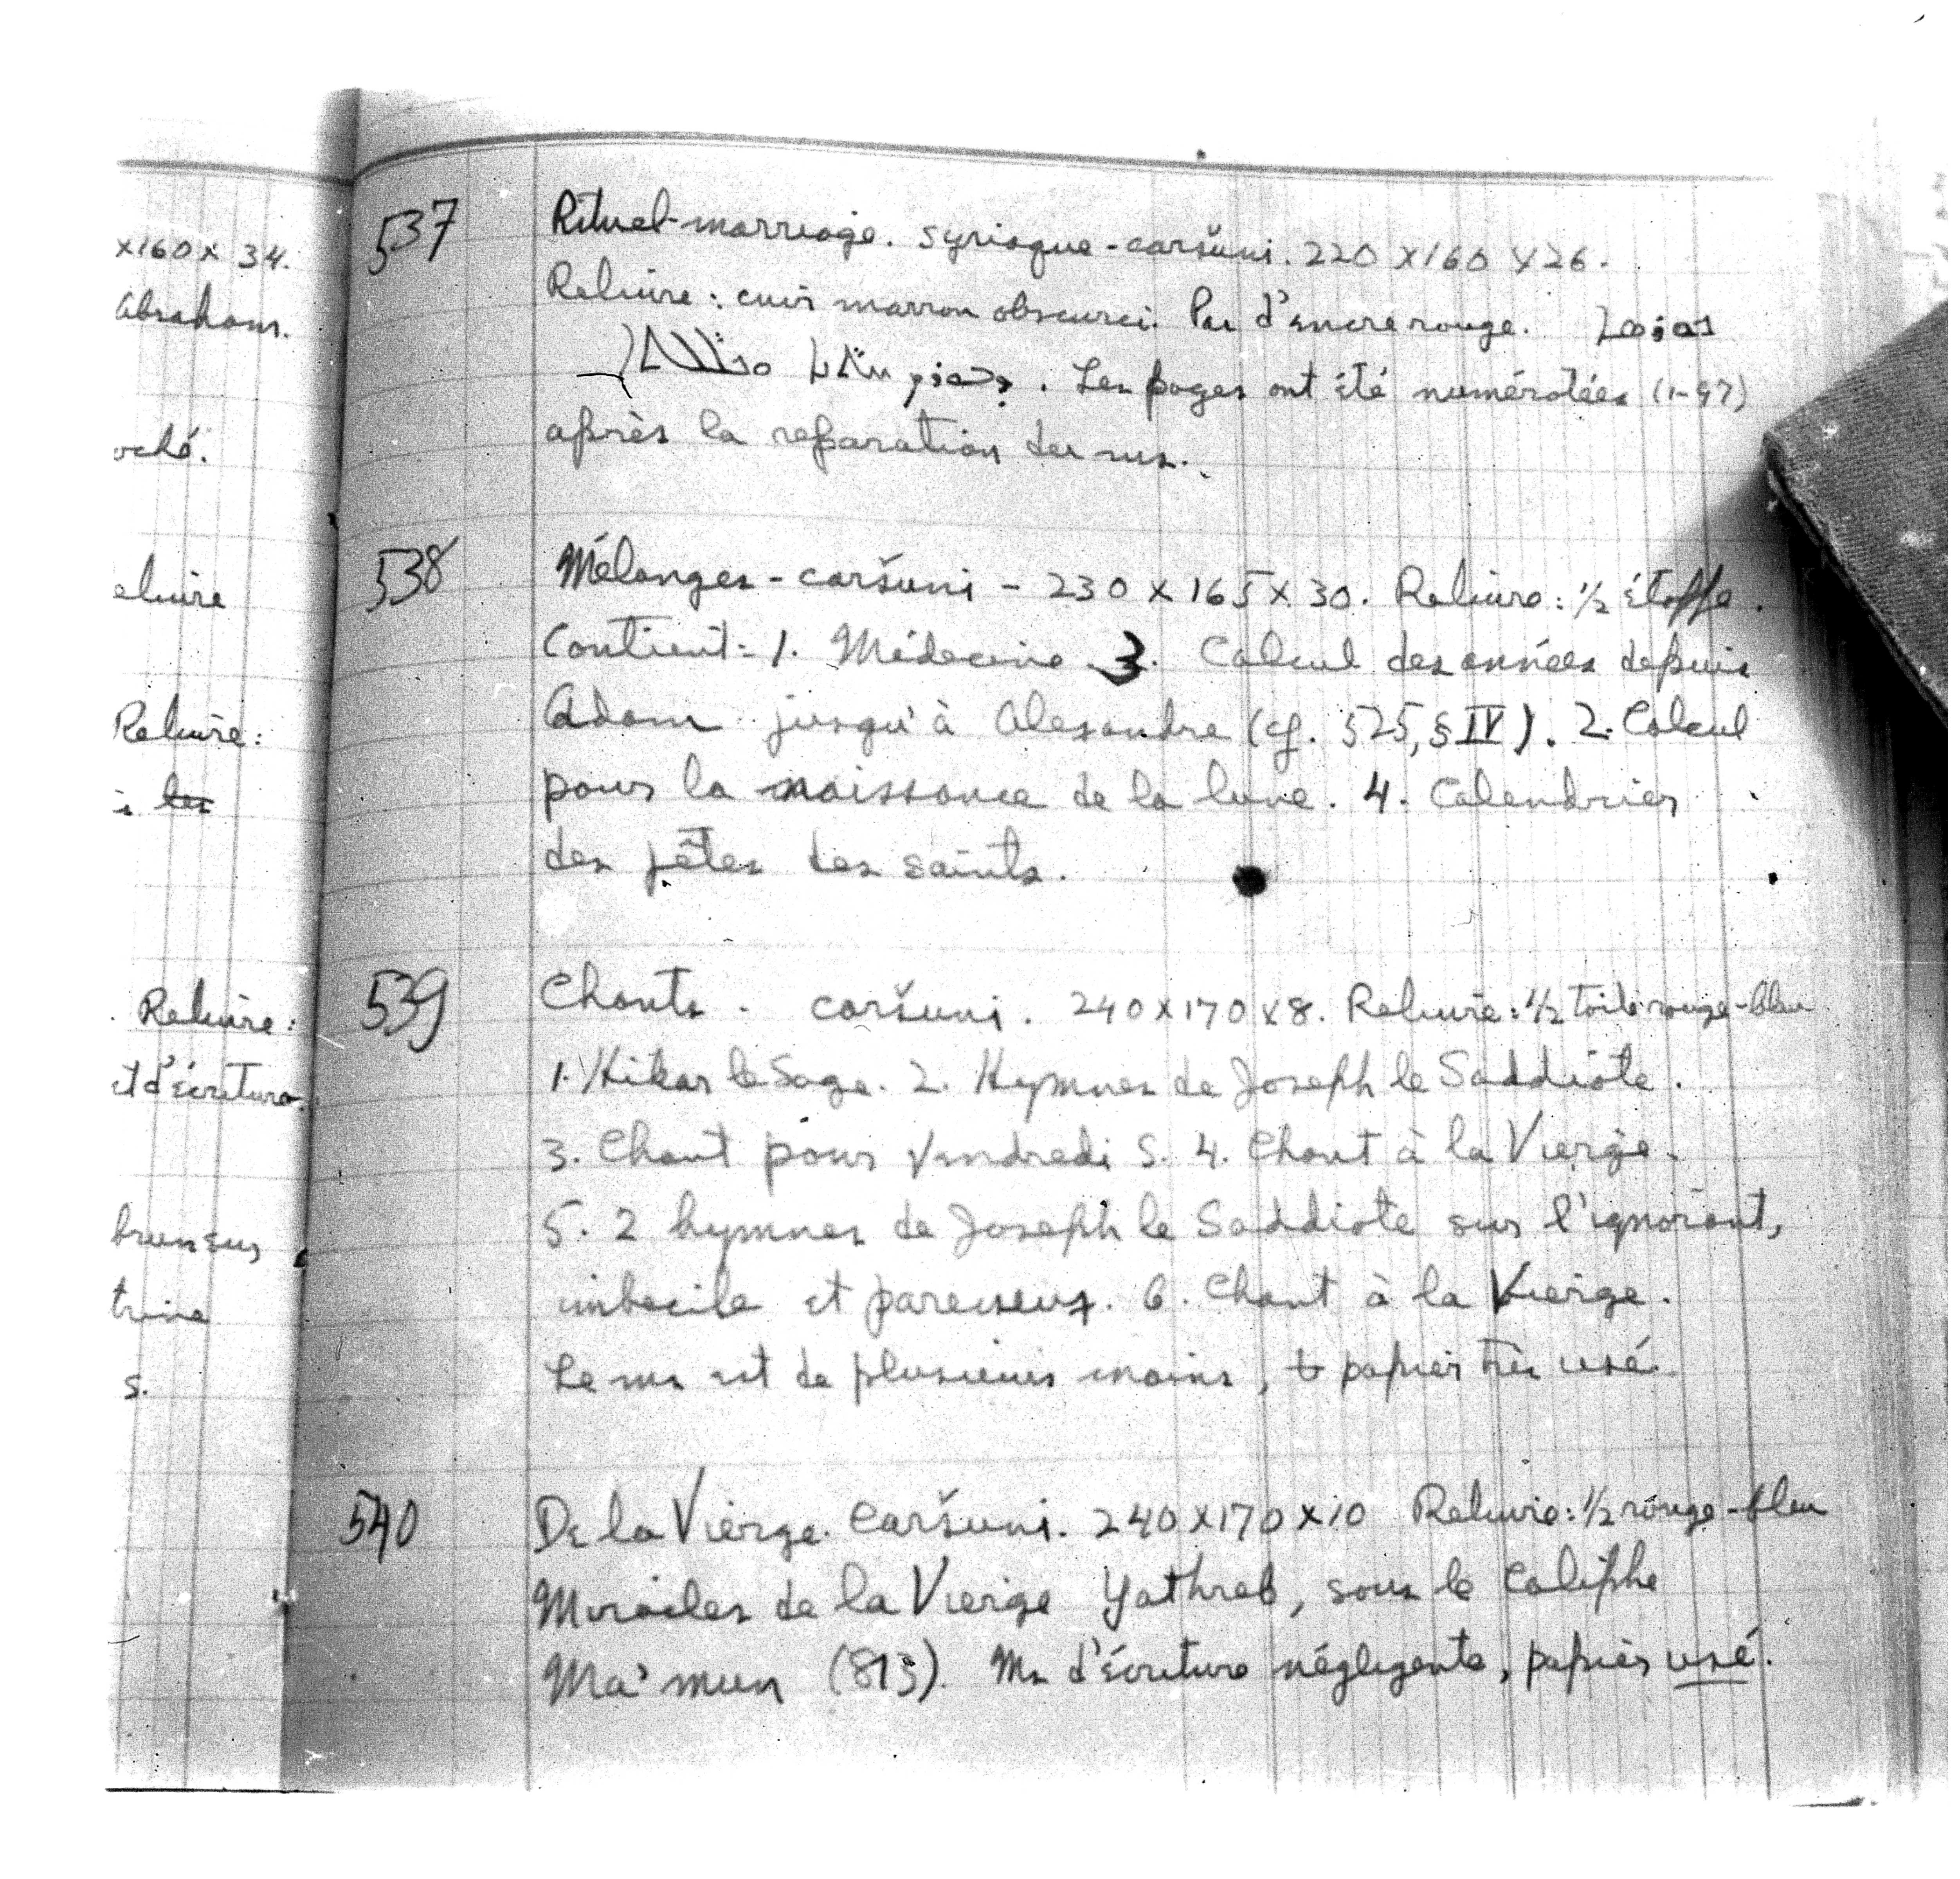 x160x 34.
Abraham.
oché.
eliure
Reliure:
s les
. Reliure:
et d'écriture.
brun sur
trine
s.
537 Rituel-marriage. syriaque-caršuni. 220 x160 x26.
Reliure: cuir marron obscurci. Peu d'encre rouge.
. Les pages ont été numérotées (1-97)
après la reparation du ms.
538 Mélanges - caršuni - 230 x 165 x 30. Reliure: 1/2 étoffe.
Contient: 1. Médecine 3. Calcul des années depuis
Adam jusqu'à Alexandre (cf. 525, § IV). 2. Calcul
pour la naissance de la lune. 4. Calendrier
des fêtes des saints.
539 Chants. caršuni. 240x170x8. Reliure: 1/2 toile rouge-bleu
1. Hikar le Sage. 2. Hymnes de Joseph le Saddiote.
3. Chant pour Vendredi S. 4. Chant à la Vierge.
5. 2 hymnes de Joseph le Saddiote sur l'ignorant,
imbecile et paresseux. 6. Chant à la Vierge.
Le ms est de plusieurs mains, papier très usé.
540 De la Vierge. Caršuni. 240x170x10 Reliure: 1/2 rouge-bleu
Miracles de la Vierge Yathreb, sous le Caliphe
Ma'mun (813). Ms d'écriture négligente, papier usé.